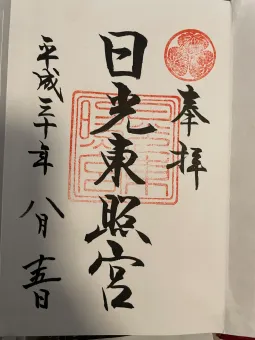 奉拝
日光東照宮
平成三十年 八月 十五日